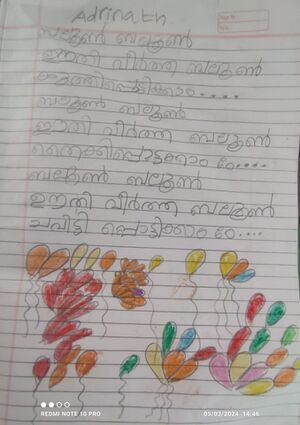 Adrinath.
ബലൂൺ ബലൂൺ
ഊതി വീർത്ത ബലൂൺ
ബലൂൺ ബലൂൺ
ഊതി വീർത്ത ബലൂൺ
ബലൂൺ ബലൂൺ
ഊതി വീർത്ത ബലൂൺ
ചവിട്ടി പ്പൊട്ടിക്കാം ഠേ....
REDMI NOTE 10 PRO
05/03/2024 14:46